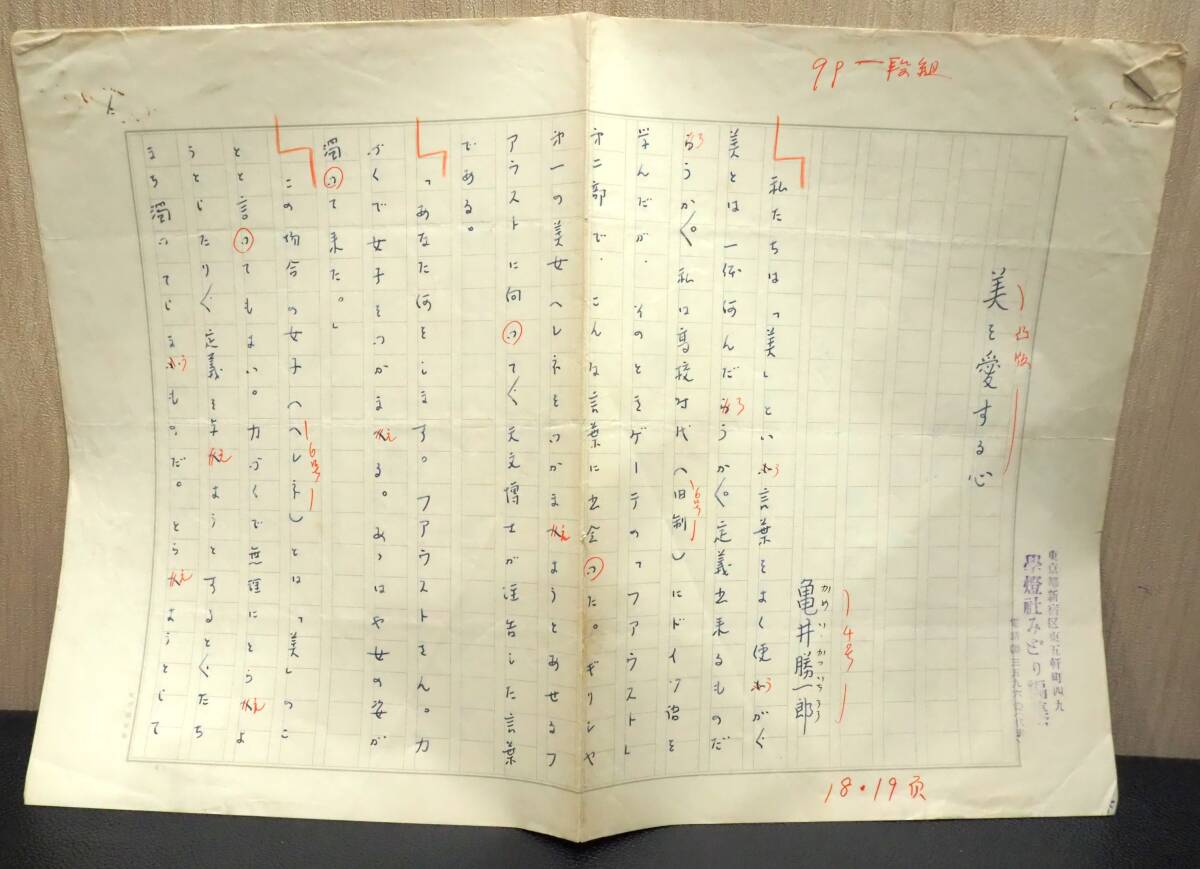 9P 一段組
東京都新宿区東五軒町四九
學燈社みどり
凸版
美を愛する心
4号
かめいかついちろう
亀井勝一郎
18・19頁
私たちは「美」という言葉をよく使うが、
美とは一体何んだろうか。定義出来るものだ
ろうか。私は高校時代(旧制)にドイツ語を
6号
学んだが、そのときゲーテの「ファウスト」
第二部で、こんな言葉に出会つた。ギリシヤ
第一の美女ヘレネをつかまえようとあせるフ
アウストに向つて、天文博士が注告した言葉
である。
「あなた何をします。ファウストさん。力
づくで女子をつかまえる。あゝはや女の姿が
濁つて来た。」
この場合の女子(ヘレネ)とは「美」のこ
6号
とと言つてもよい。力づくで無理にとらえよ
うとしたり、定義を与えようとすると、たち
まち濁つてしまうものだ。とらえようとして